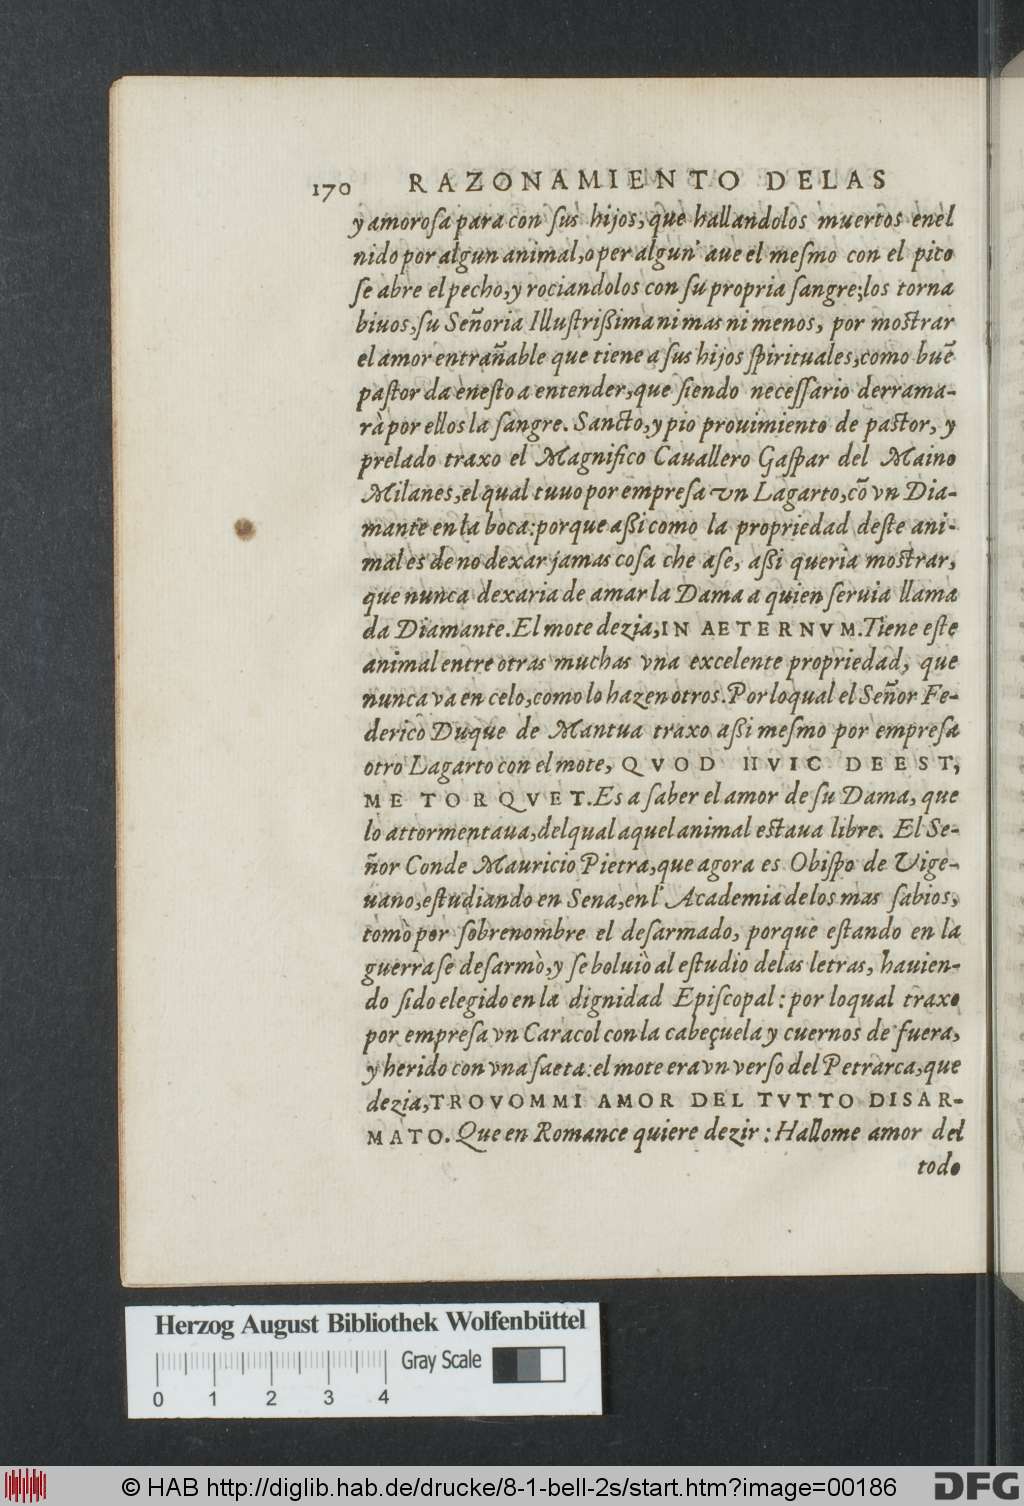 170 RAZONAMIENTO DELAS
y amorosa para con sus hijos, que hallandolos muertos enel
nido por algun animal, o per algun' aue el mesmo con el pico
se abre el pecho, y rociandolos con su propria sangre; los torna
biuos, su Señoria Illustrißima ni mas ni menos, por mostrar
el amor entrañable que tiene a sus hijos spirituales, como buē
pastor da enesto a entender, que siendo necessario derrama-
rà por ellos la sangre. Sancto, y pio prouimiento de pastor, y
prelado traxo el Magnifico Cauallero Gaspar del Maino
Milanes, el qual tuuo por empresa vn Lagarto, cō vn Dia-
mante en la boca: porque aßi como la propriedad deste ani-
mal es de no dexar jamas cosa che ase, aßi queria mostrar,
que nunca dexaria de amar la Dama a quien seruia llama
da Diamante. El mote dezia, IN AETERNVM. Tiene este
animal entre otras muchas vna excelente propriedad, que
nunca va en celo, como lo hazen otros. Por loqual el Señor Fe-
derico Duque de Mantua traxo aßi mesmo por empresa
otro Lagarto con el mote, QVOD HVIC DEEST,
ME TORQVET. Es a saber el amor de su Dama, que
lo attormentaua, delqual aquel animal estaua libre. El Se-
ñor Conde Mauricio Pietra, que agora es Obispo de Vige-
uano, estudiando en Sena, enl' Academia delos mas sabios,
tomò por sobrenombre el desarmado, porque estando en la
guerra se desarmò, y se boluiò al estudio delas letras, hauien-
do sido elegido en la dignidad Episcopal: por loqual traxo
por empresa vn Caracol con la cabeçuela y cuernos de fuera,
y herido con vna saeta: el mote era vn verso del Petrarca, que
dezia, TROVOMMI AMOR DEL TVTTO DISAR-
MATO. Que en Romance quiere dezir: Hallome amor del
todo
Herzog August Bibliothek Wolfenbüttel
Gray Scale
0 1 2 3 4
© HAB http://diglib.hab.de/drucke/8-1-bell-2s/start.htm?image=00186
DFG